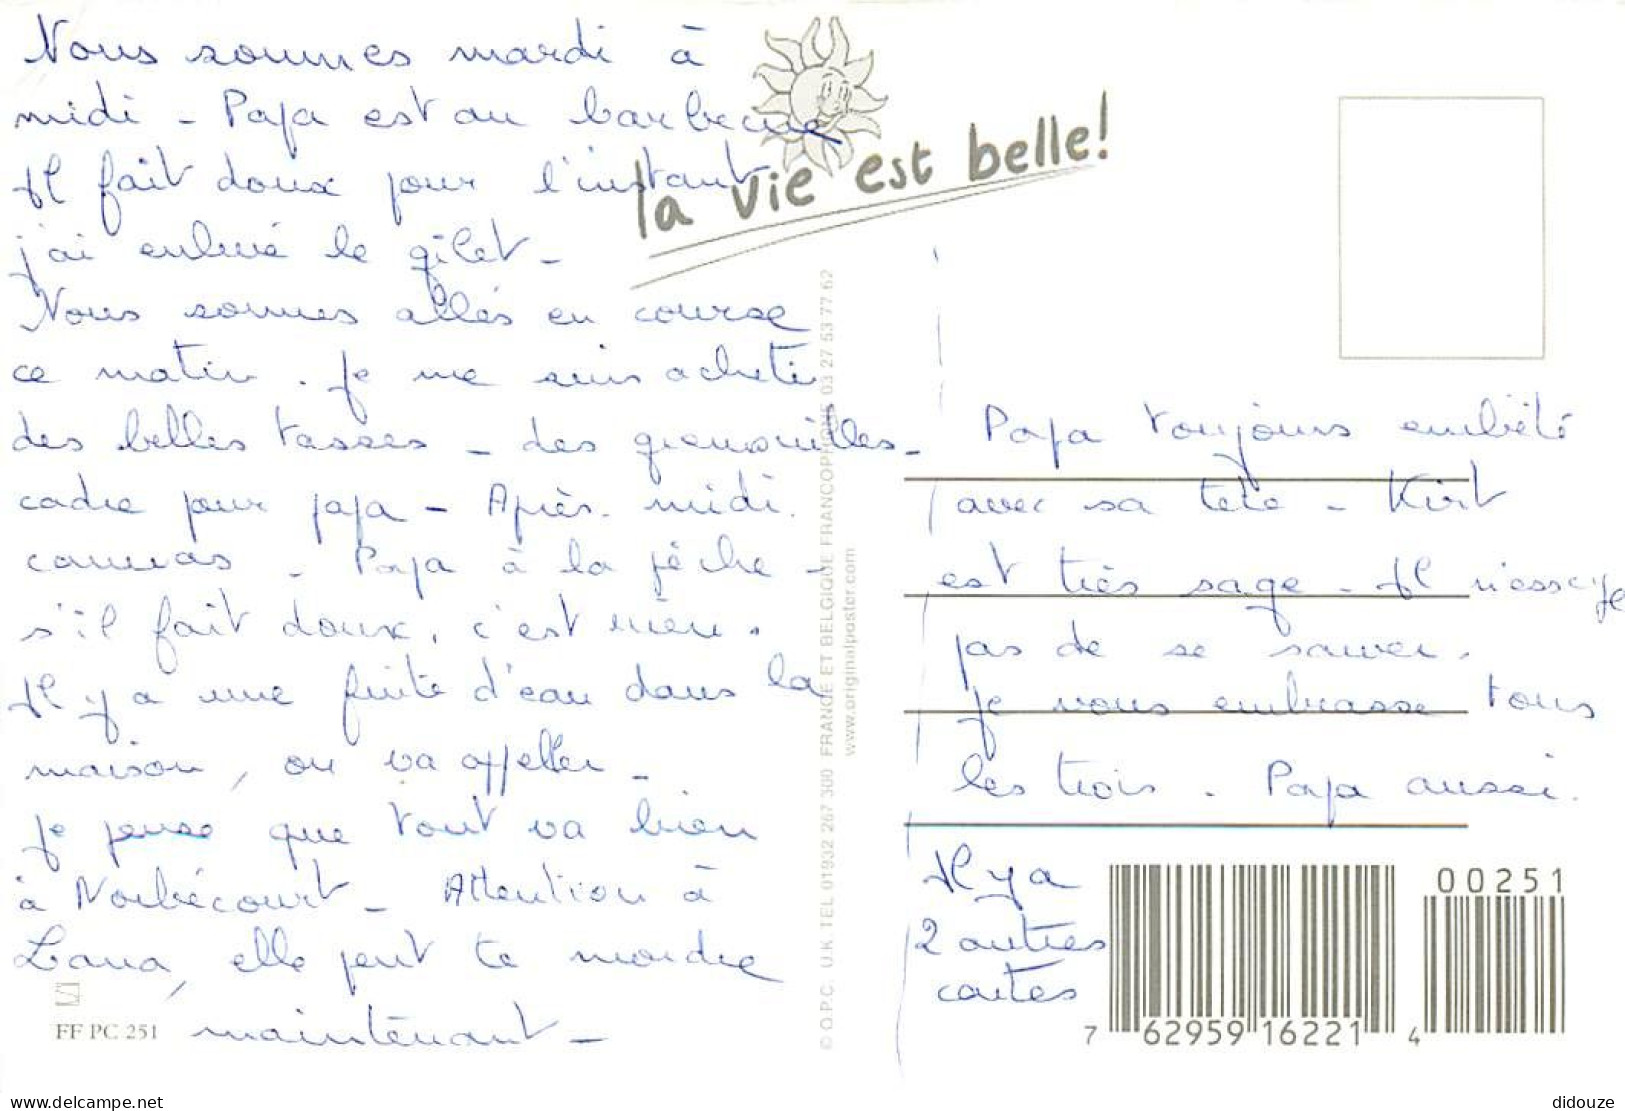 Nous sommes mardi à
midi - Papa est au barbecue
Il fait doux pour l'instant
j'ai enlevé le gilet -
Nous sommes allés en course
ce matin. Je me suis acheté
des belles tasses - des grenouilles -
cadre pour papa - Après-midi.
canevas - Papa à la pêche -
s'il fait doux, c'est mieux.
Il y a une fuite d'eau dans la
maison, on va appeller -
Je pense que tout va bien
à Norbécourt - Attention à
Lana, elle peut te mordre
maintenant -
la vie est belle!
Papa toujours embêté
avec sa tete - Kirt
est très sage - Il n'essaye
pas de se sauver.
Je vous embrasse tous
les trois. Papa aussi.
Il y a
2 autres
cartes
© O.P.C. U.K. TEL 01932 267 300 FRANCE ET BELGIQUE FRANCOPHONE 03 27 53 77 62
www.originalposter.com
FF PC 251
00251
7 62959 16221 4
www.delcampe.net
didouze